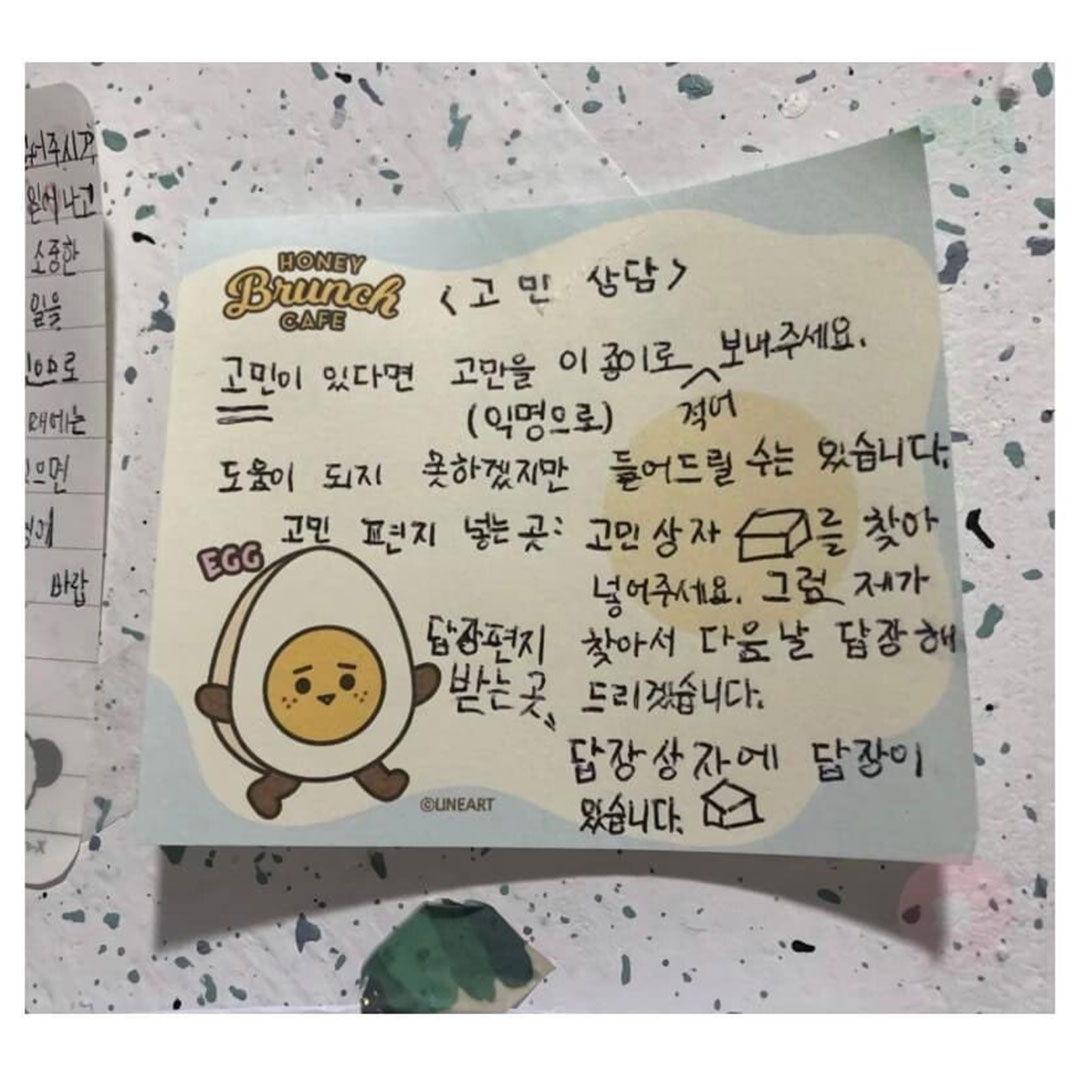 어주시고
원에 나고
소중한
일을
으로
때에는
으면
에
바랍
HONEY
Brunch
CAFE
<고민 상담>
고민이 있다면 고만을 이 종이로 적어 보내주세요.
(익명으로)
도움이 되지 못하겠지만 들어드릴 수는 있습니다.
고민 편지 넣는 곳: 고민상자 를 찾아
넣어주세요. 그럼 제가
찾아서 다음날 답장해
드리겠습니다.
EGG
답장편지
받는 곳
답장상자에 답장이
있습니다.
©LINEART